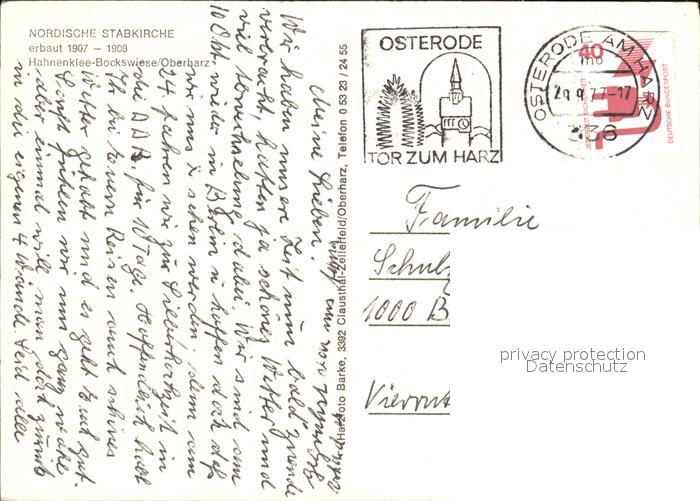 NORDISCHE STABKIRCHE
erbaut 1907 – 1908
Hahnenklee-Bockswiese/Oberharz
Meine Lieben.
Wir haben unsere Zeit nun bald zu ende
verbracht, hatten ja schönes Wetter und
viel Unterhaltung dabei. Wir sind am
10 Okt. wieder in Berlin u. hoffen doch daß
wir uns sehen werden. denn am
24. fahren wir zur Silberhochzeit in
die DDR. für 10 Tage. Hoffentlich habt
Ihr bei Euren Reisen auch schönes
Wetter gehabt und es geht Euch gut.
Sonst fühlen wir uns ganz wohl
aber einmal will man doch zurück
in die eigenen 4 Wände. Seid alle
Foto Barke, 3392 Clausthal-Zellerfeld/Oberharz, Telefon 0 53 23 / 24 55
OSTERODE
TOR ZUM HARZ
OSTERODE AM HARZ
29.9.77-17
336
40
DEUTSCHE BUNDESPOST
Familie
Schul
1000 B
privacy protection
Datenschutz